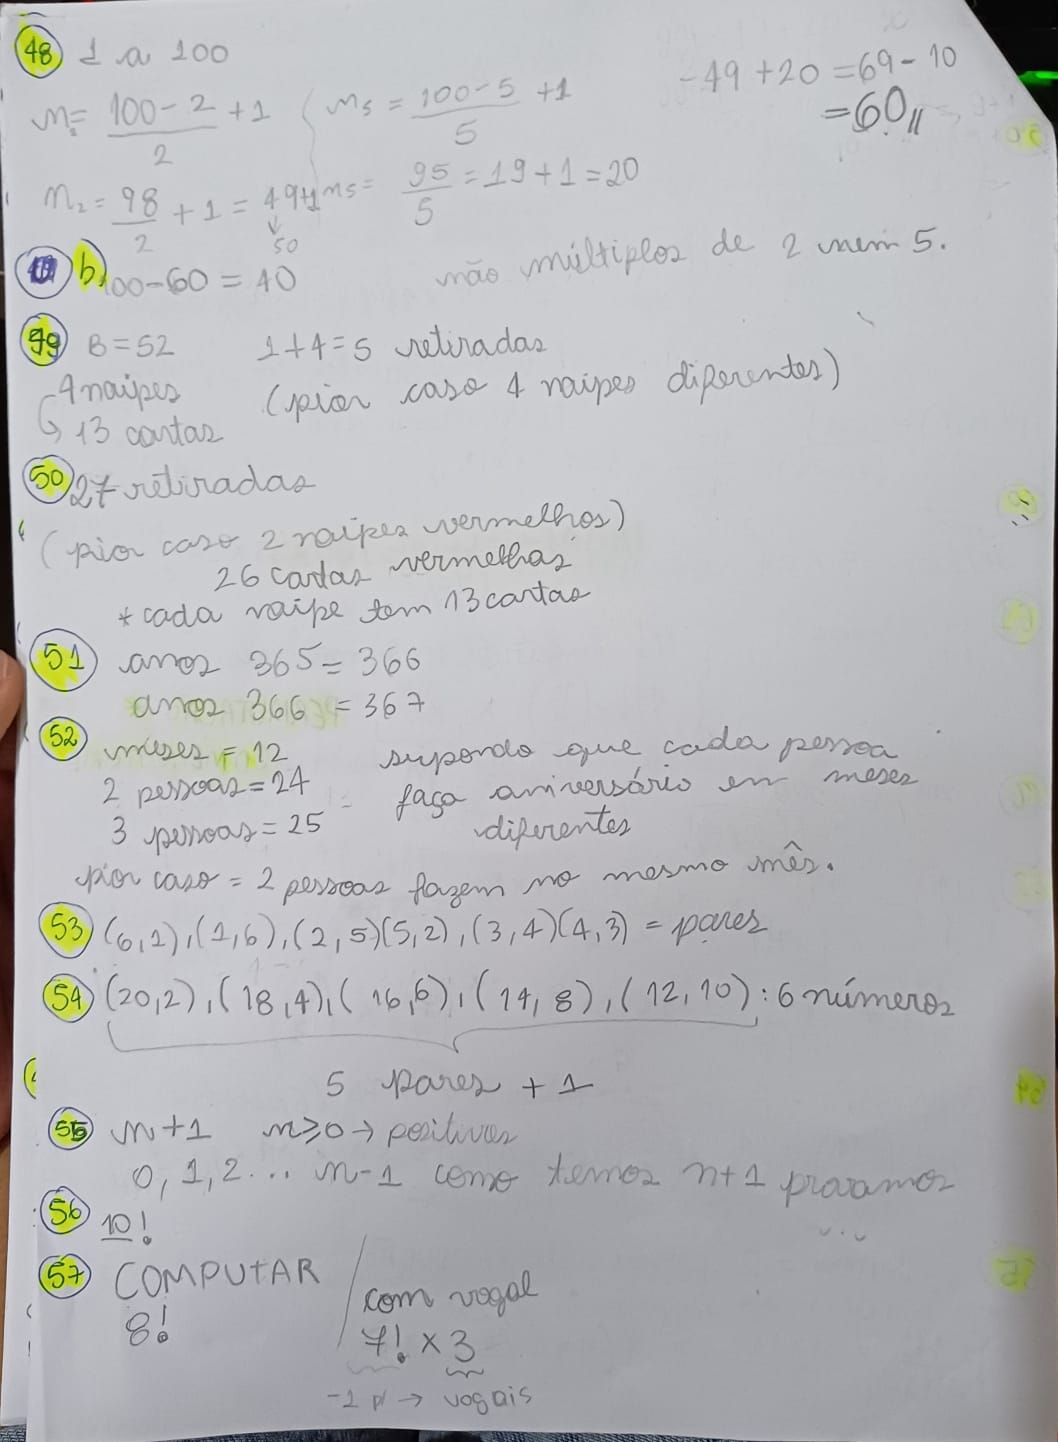 48 1 a 100
-49 + 20 = 69 - 10
= 60 //
n₂ = (100-2)/2 + 1
n₅ = (100-5)/5 + 1
n₂ = 98/2 + 1 = 49+1
↓
50
n₅ = 95/5 = 19 + 1 = 20
b) 100-60 = 40 não múltiplos de 2 nem 5.
49 B = 52 1+4 = 5 retiradas
4 naipes (pior caso 4 naipes diferentes)
↳ 13 cartas
50 27 retiradas
(pior caso 2 naipes vermelhos)
26 cartas vermelhas
* cada naipe tem 13 cartas
51 anos 365 = 366
anos 366 = 367
52 meses = 12 supondo que cada pessoa
2 pessoas = 24 faça aniversário em meses
3 pessoas = 25 diferentes
pior caso = 2 pessoas fazem no mesmo mês.
53 (6,1),(1,6),(2,5)(5,2),(3,4)(4,3) = pares
54 (20,2),(18,4),(16,6),(14,8),(12,10): 6 números
5 pares + 1
55 n+1 n≥0 → positivos
0, 1, 2... n-1 como temos n+1 provamos
...
56 10!
57 COMPUTAR
8!
com vogal
7! x 3
-1 p/ → vogais